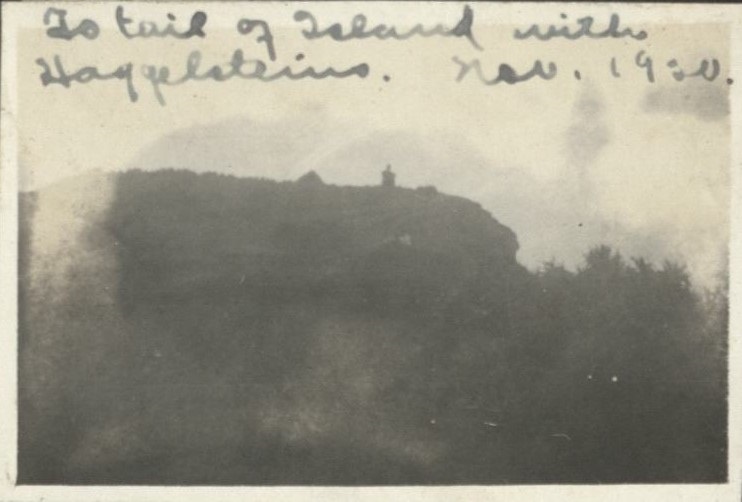 To tail of Island with
Haggelsteins. Nov. 1920.